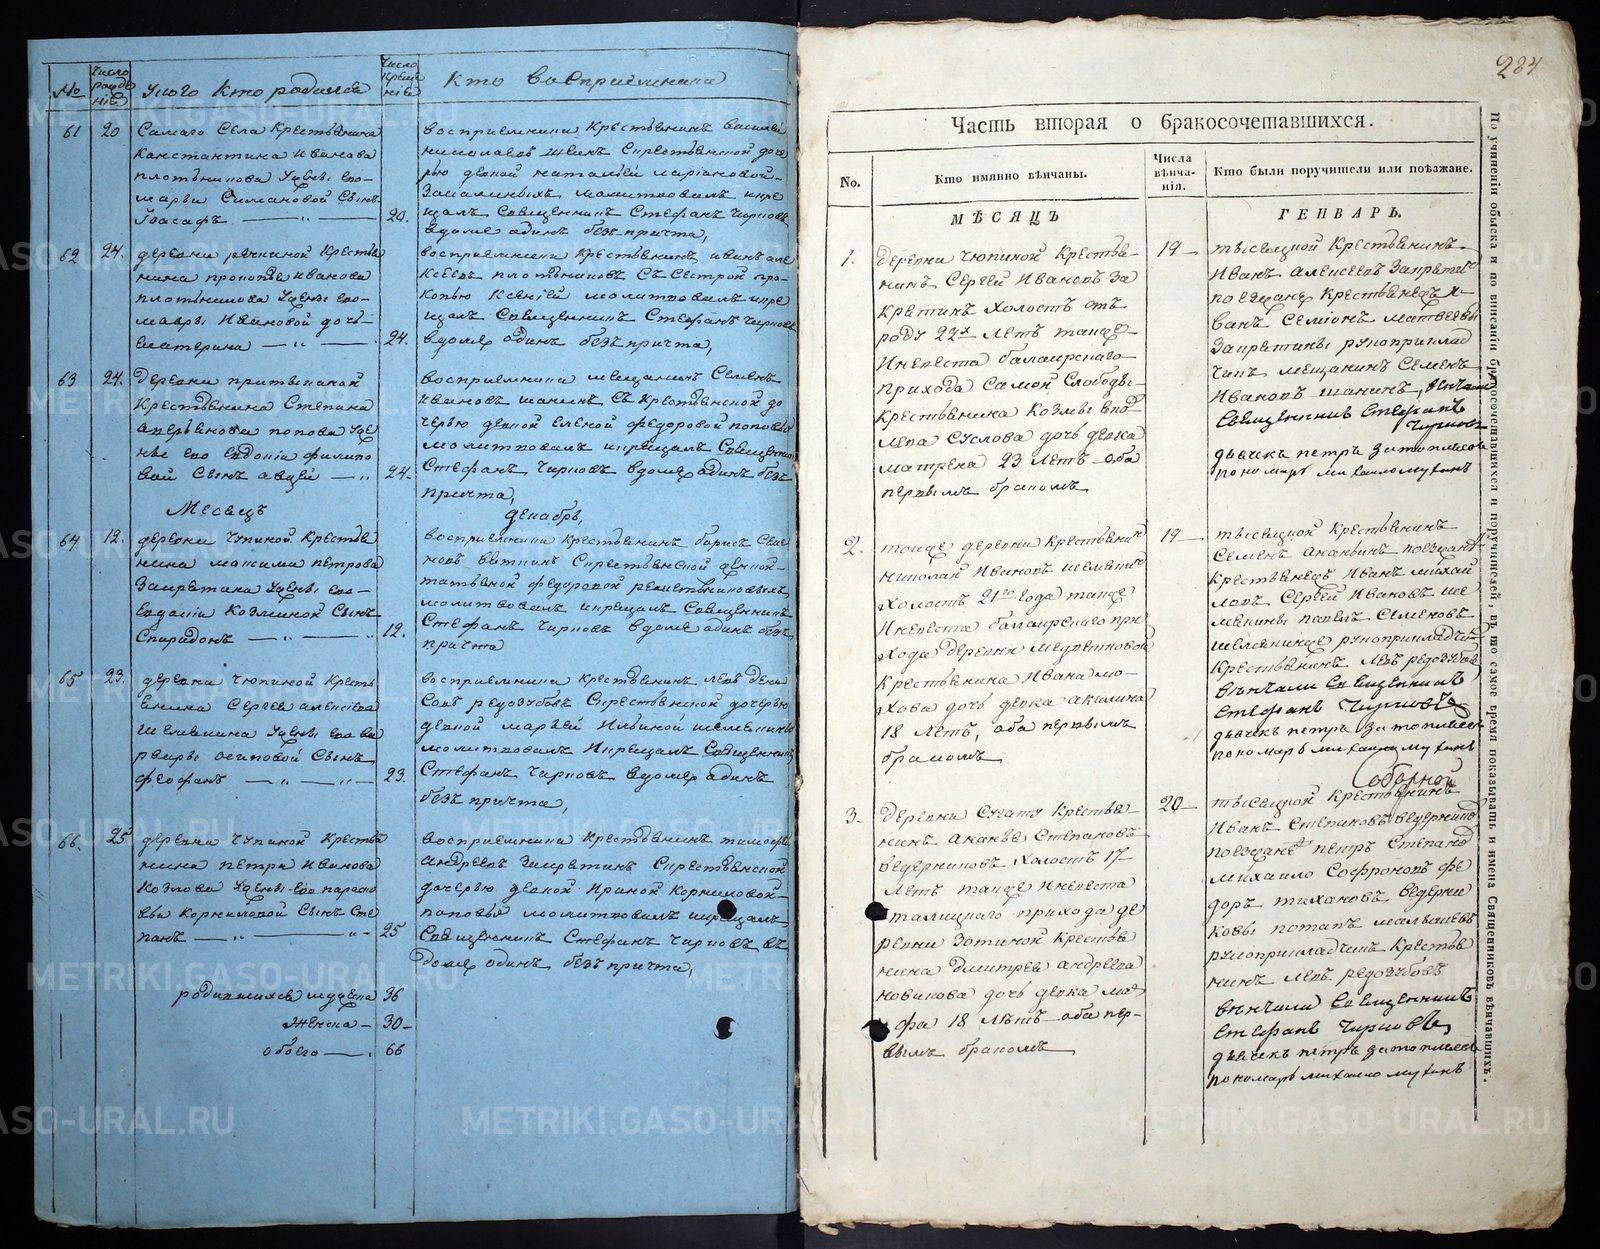 №
Число рождѣнія
У кого кто родился
Число крещѣнія
Кто восприемники
61
20
Самаго Села Крестьянина
Канстантина Иванова
плотникова У жены его
марѳы Симановой Сынъ
Іоасафъ
20.
восприемники Крестьянинъ василей
дѣвкой натальей маріановой
молитвовалъ и кре
щалъ Священникъ Стефанъ Чирковъ
вдоме адинъ безъ причта,
62
24.
деревни речкиной Крестья
нина прокопья иванова
плотникова У жены его
мавры Ивановой дочь
Екатерина
24.
восприемники Крестьянинъ иванъ але
ксеевъ плотниковъ Съ Сестрой про
копью Ксеніей молитвовалъ и кре
щалъ Священникъ Стефанъ Чирковъ
вдоме одинъ безъ причта,
63
24.
деревни притыкиной
Крестьянина Степана
Аверьянова попова У же
ны его Евдокіи филипо
вой Сынъ авдей
24.
восприемники мещанинъ Семенъ
Ивановъ шанинъ Съ Крестьянской до
черью девкой еленой федоровой поповы
молитвовалъ икрещалъ Священникъ
Стефанъ Чирковъ вдоме адинъ безъ
причта,
Месецъ
декабрь,
64
12.
деревни Чупиной Крестья
нина максима петрова
Запретина У жены его
Евдокіи Козминой Сынъ
Спиридонъ
12.
восприемники Крестьянинъ борисъ Семе
новъ вяткинъ Скрестьянской девкой
татьяной федоровой
молитвовалъ икрещалъ Священникъ
Стефанъ Чирковъ вдоме одинъ безъ
причта
65
23.
деревни Чюпиной Кресть
янина Сергея алексеева
Шемякина У жены его ва
рвары осиповой Сынъ
феофанъ
23.
восприемники Крестьянинъ левъ дени
совъ редозубовъ Скрестьянской дочерью
девкой марѳей Ильиной шемякины
молитвовалъ Икрещалъ Священникъ
Стефанъ Чирковъ вдоме адинъ
безъ причта,
66.
25
деревни Чупиной Крестья
нина петра Иванова
Козлова У жены его параско
вьи Корниловой Сынъ Сте
панъ
25
восприемники Крестьянинъ тимофей
андреевъ Запретинъ Скрестьянской
дочерью девкой Ириной Корниловой
поповыя молитвовалъ икрещалъ
Священникъ Стефанъ Чирковъ въ
доме одинъ безъ причта,
родившихся мужеска 36
женска 30
обоего 66
284
Часть вторая о бракосочетавшихся.
No.
Кто имянно вѣнчаны.
Числа вѣнчанія.
Кто были поручители или поѣзжане.
МѢСЯЦЪ
ГЕНВАРЬ.
1.
деревни Чюпиной Крестья
нинъ Сергей Ивановъ За
кретинъ Холостъ отъ
роду 22х летъ також
Иневеста балаирскаго
прихода Самой Слободы
Крестьянина Козмы
Суслова дочь девка
матрена 23 летъ оба
первымъ бракомъ
19
тысецкой Крестьянинъ
Иванъ алексеевъ Запретинъ
поезжане Крестьяне И
ванъ Семіонъ матвеевы
Запретины рукоприклад
чикъ мещанинъ Семенъ
Ивановъ шанинъ, венчали
Священникъ Стефанъ
Чирковъ
дьячекъ петръ Затопляевъ
пономарь михаило мухинъ
2.
тоже деревни Крестьянинъ
николай Ивановъ шемякинъ
Холостъ 21го года також
Иневеста балаирскаго при
хода деревни медветковой
Крестьянина Ивана мо
хова дочь девка акилина
18 летъ, оба первымъ
бракомъ
19
тысецкой Крестьянинъ
Семенъ Ананьинъ поезжане
Крестьяне Иванъ михай
ловъ Сергей Ивановъ ше
мякины павелъ Семеновъ
шемякинъ рукоприкладчикъ
Крестьянинъ левъ редозубовъ
вѣнчали Священникъ
Стефанъ Чирковъ
дьячекъ петръ Затопляевъ
пономарь михаило мухинъ
3.
деревни Сугату Крестья
нинъ Ананья Степановъ
Ведерниковъ Холостъ 17
летъ також Иневеста
талицкаго прихода де
ревни Зотиной Крестья
нина дмитрея андреева
новикова дочь девка мар
фа 18 лѣтъ оба пер
вымъ бракомъ
20
тысецкой Крестьянинъ
Иванъ Степановъ Ведерниковъ
поезжане петръ Степановъ
михаило Софроновъ фе
доръ тихановъ Ведерни
ковы потапъ малышевъ
рукоприкладчикъ Крестья
нинъ левъ редозубовъ
вѣнчали Священникъ
Стефанъ Чирковъ
дьячекъ петръ Затопляевъ
пономарь михаило мухинъ
Соборной
По учиненіи обыска и по вписаніи бракосочетавшихся и поручителей, въ то самое время показывать и имена Священниковъ вѣнчавшихъ.
METRIKI.GASO-URAL.RU